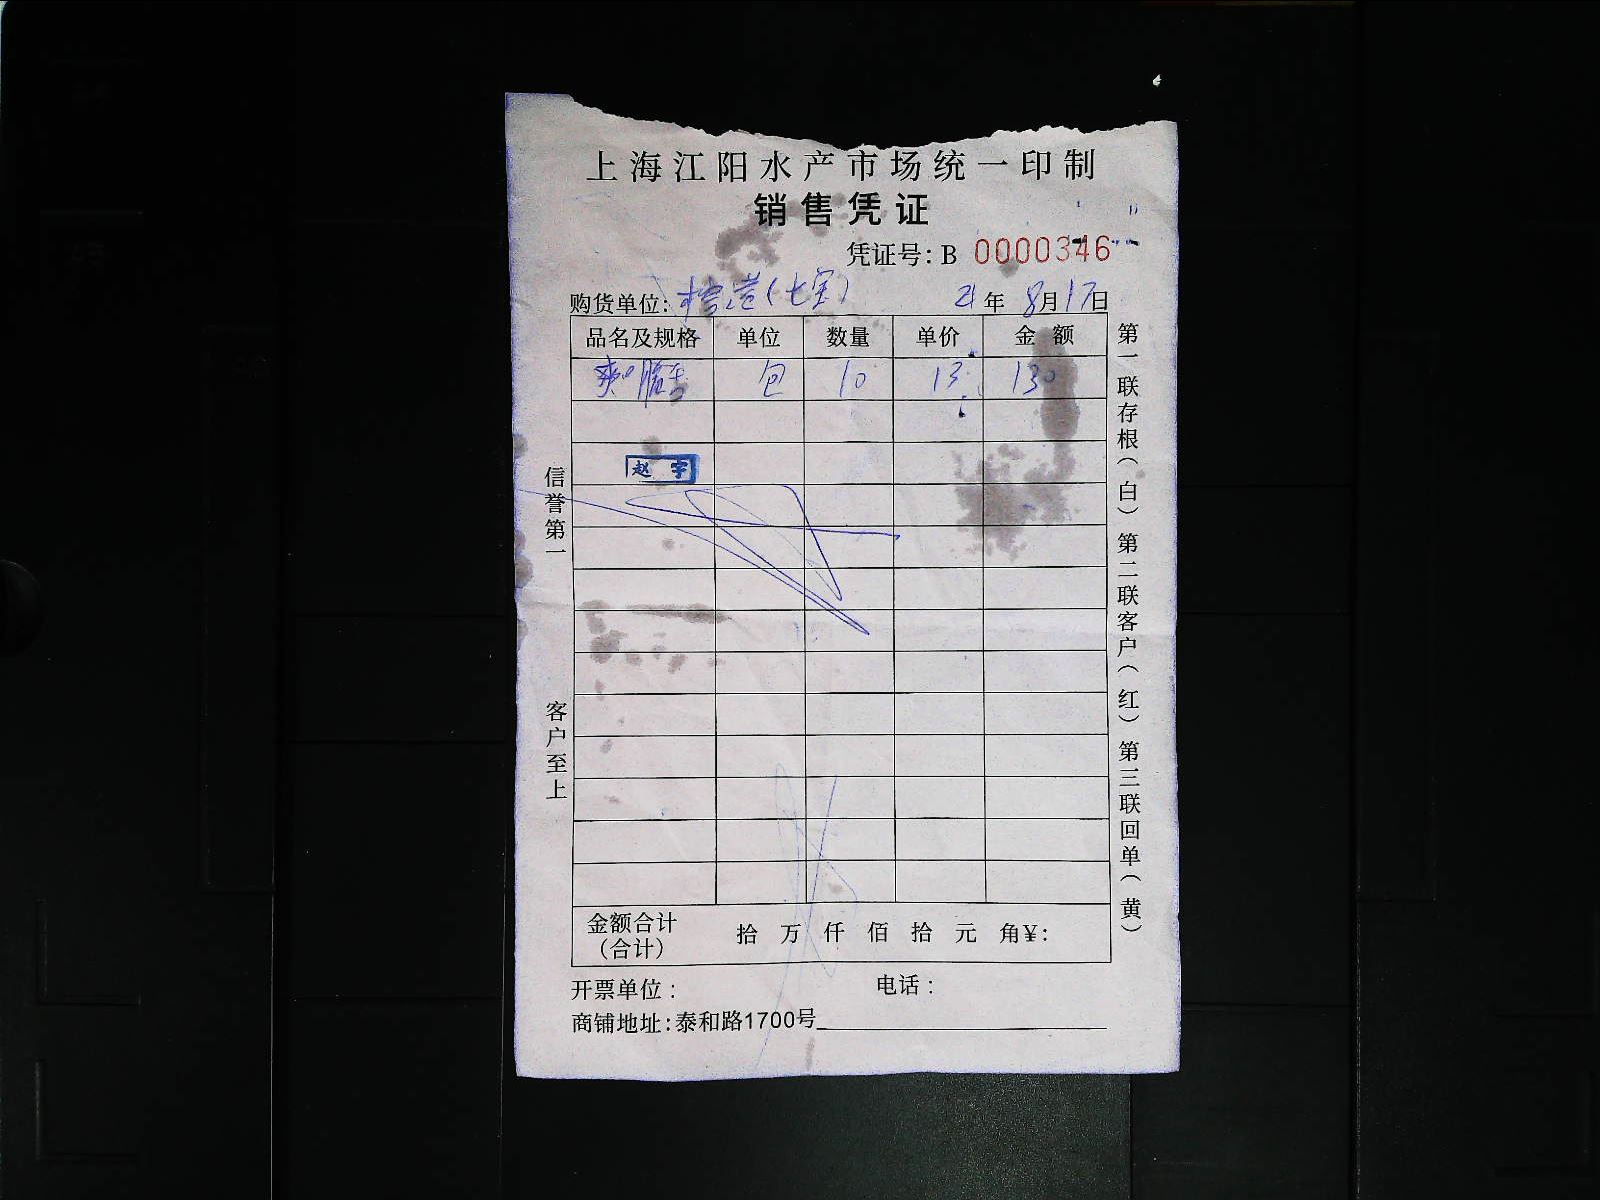 上海江阳水产市场统一印制
销售凭证
凭证号：B 0000346
购货单位： （七宝） 21年 8月17日
品名及规格 单位 数量 单价 金额
包 10 13 130
赵宇
信誉第一
客户至上
第一联存根（白）第二联客户（红）第三联回单（黄）
金额合计
（合计） 拾 万 仟 佰 拾 元 角¥：
开票单位： 电话：
商铺地址：泰和路1700号